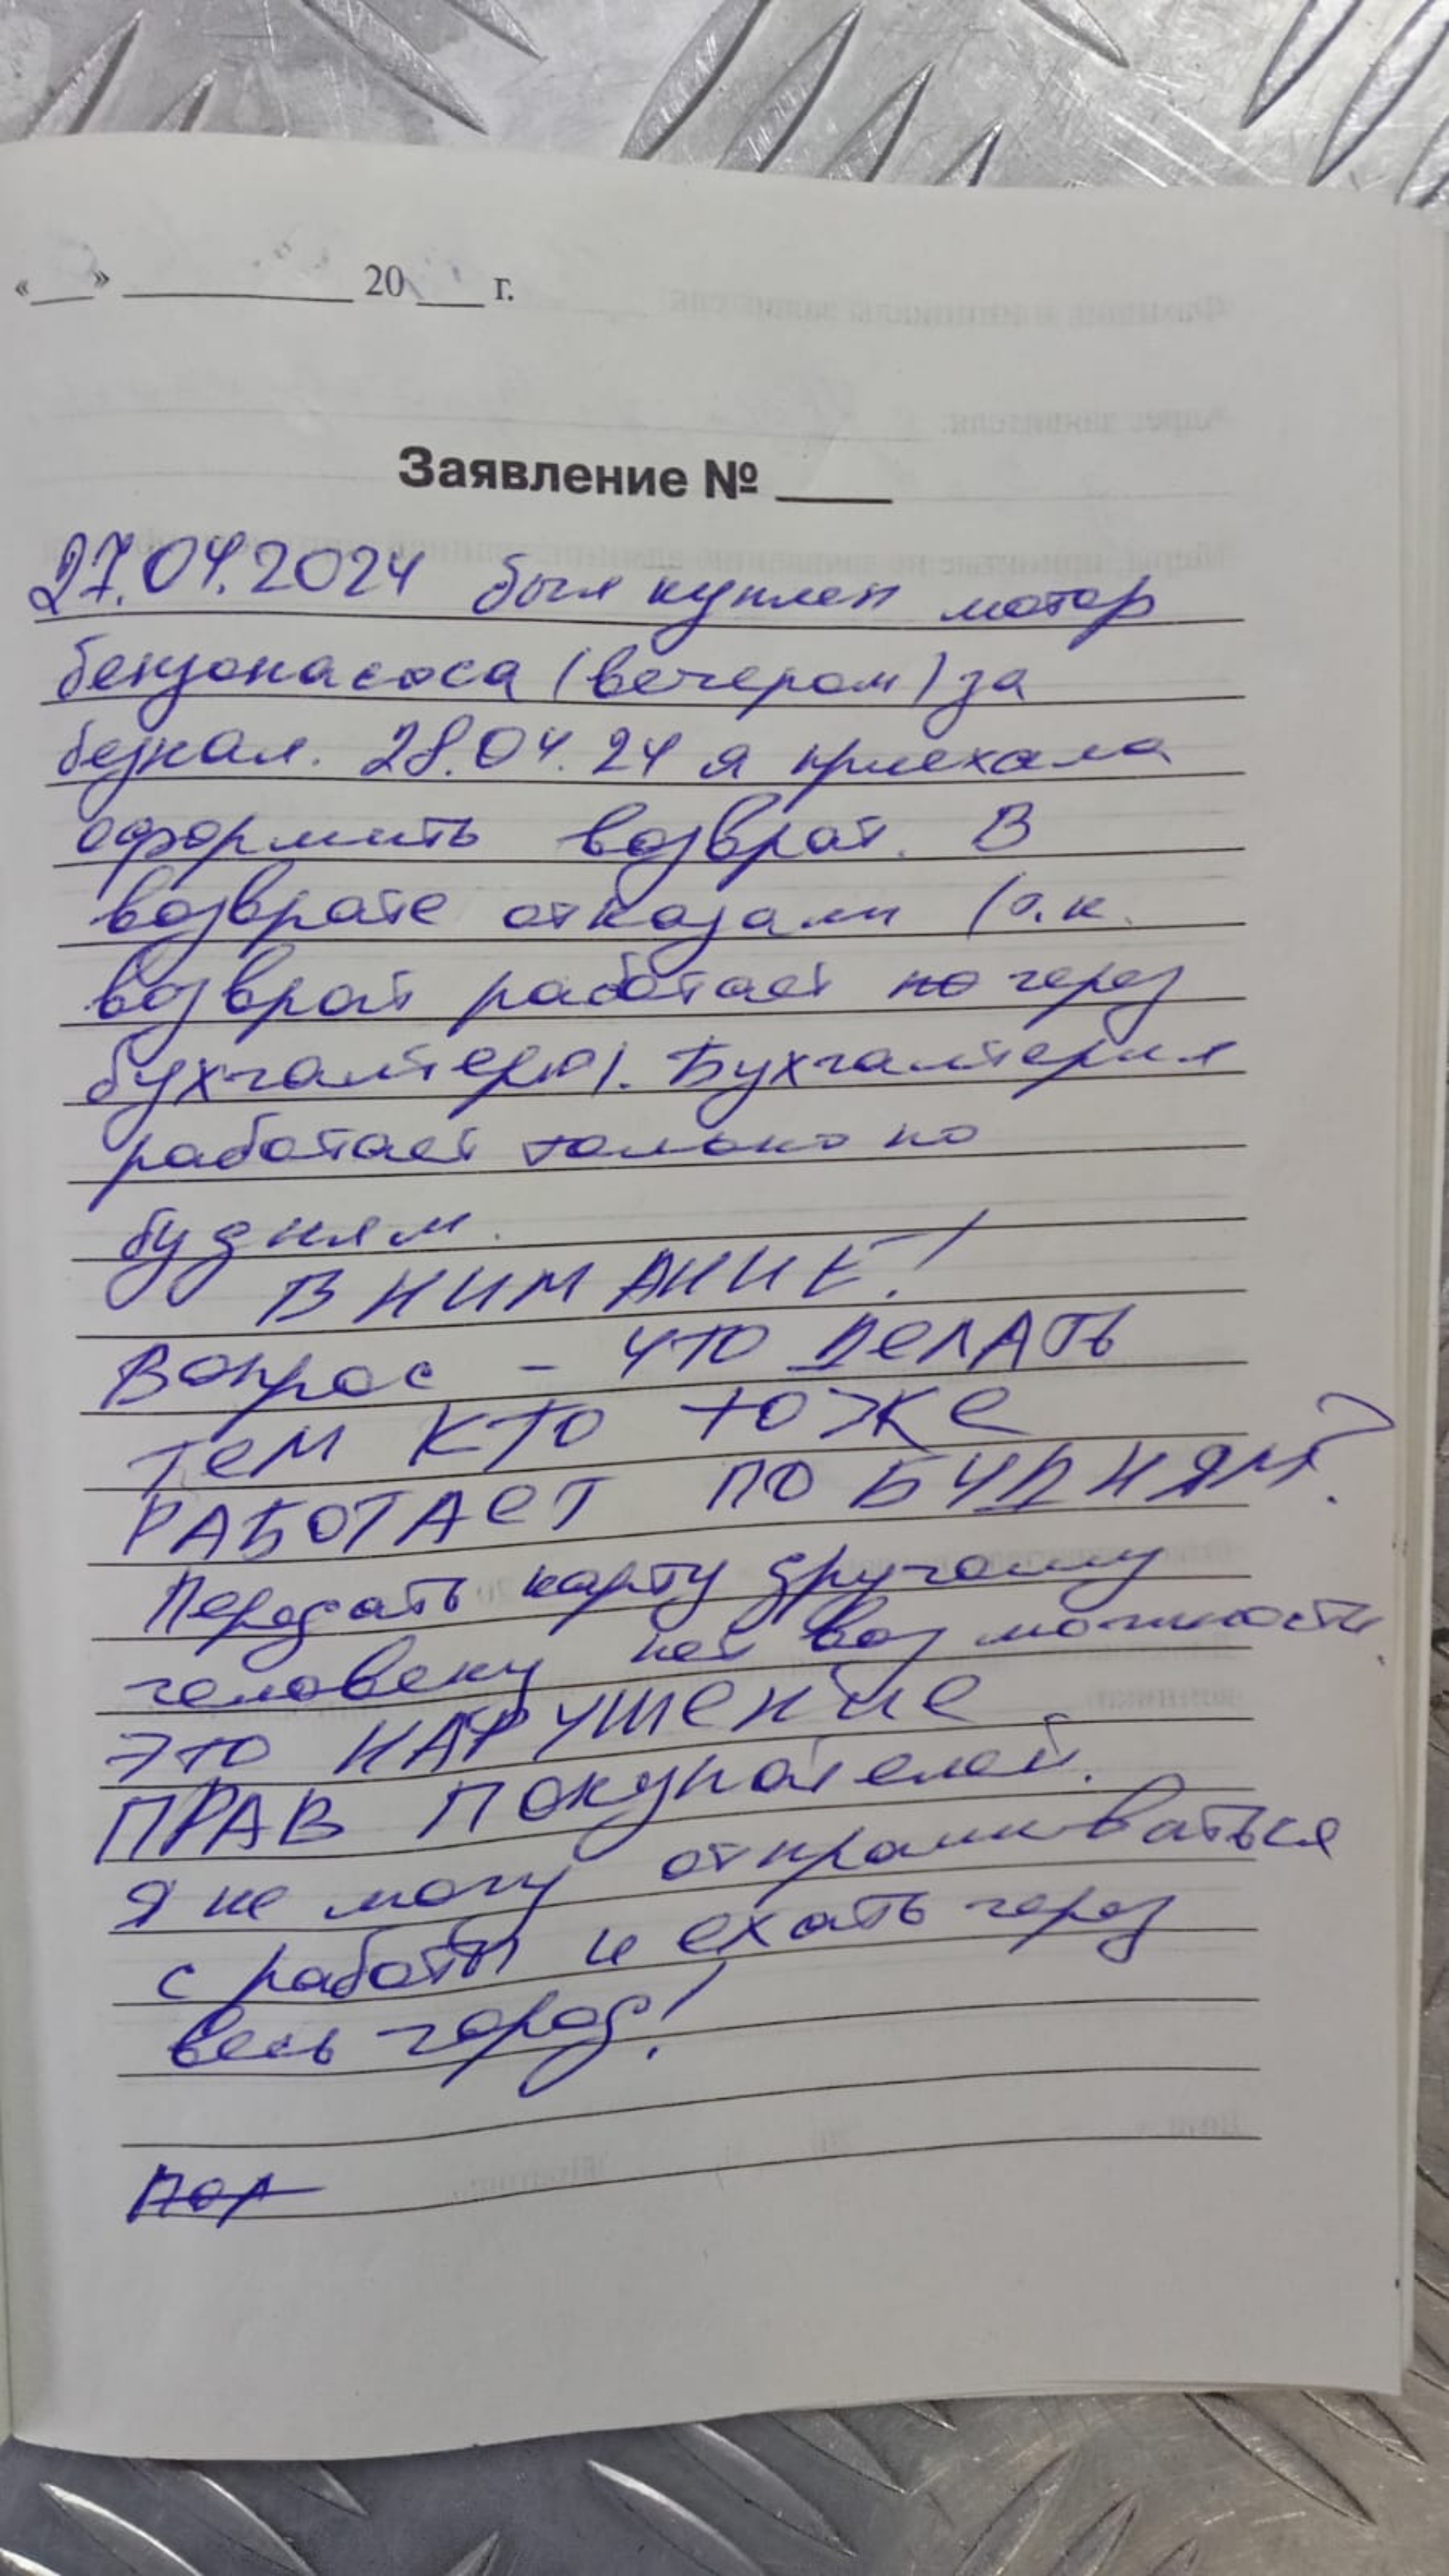 «___» ____________ 20 ____ г.
Заявление № ____
27.04.2024 был куплен мотор
бензонасоса (вечером) за
безнал. 28.04.24 я приехала
оформить возврат. В
возврате отказали (т.к.
возврат работает но через
бухгалтерю). Бухгалтерия
работает только по
будням.
ВНИМАНИЕ!
Вопрос - ЧТО ДЕЛАТЬ
ТЕМ КТО ТОЖЕ
РАБОТАЕТ ПО БУДНЯМ?
Передать карту другому
человеку нет возможности.
ЭТО НАРУШЕНИЕ
ПРАВ Покупателей.
Я не могу отпрашиваться
с работы и ехать через
весь город!